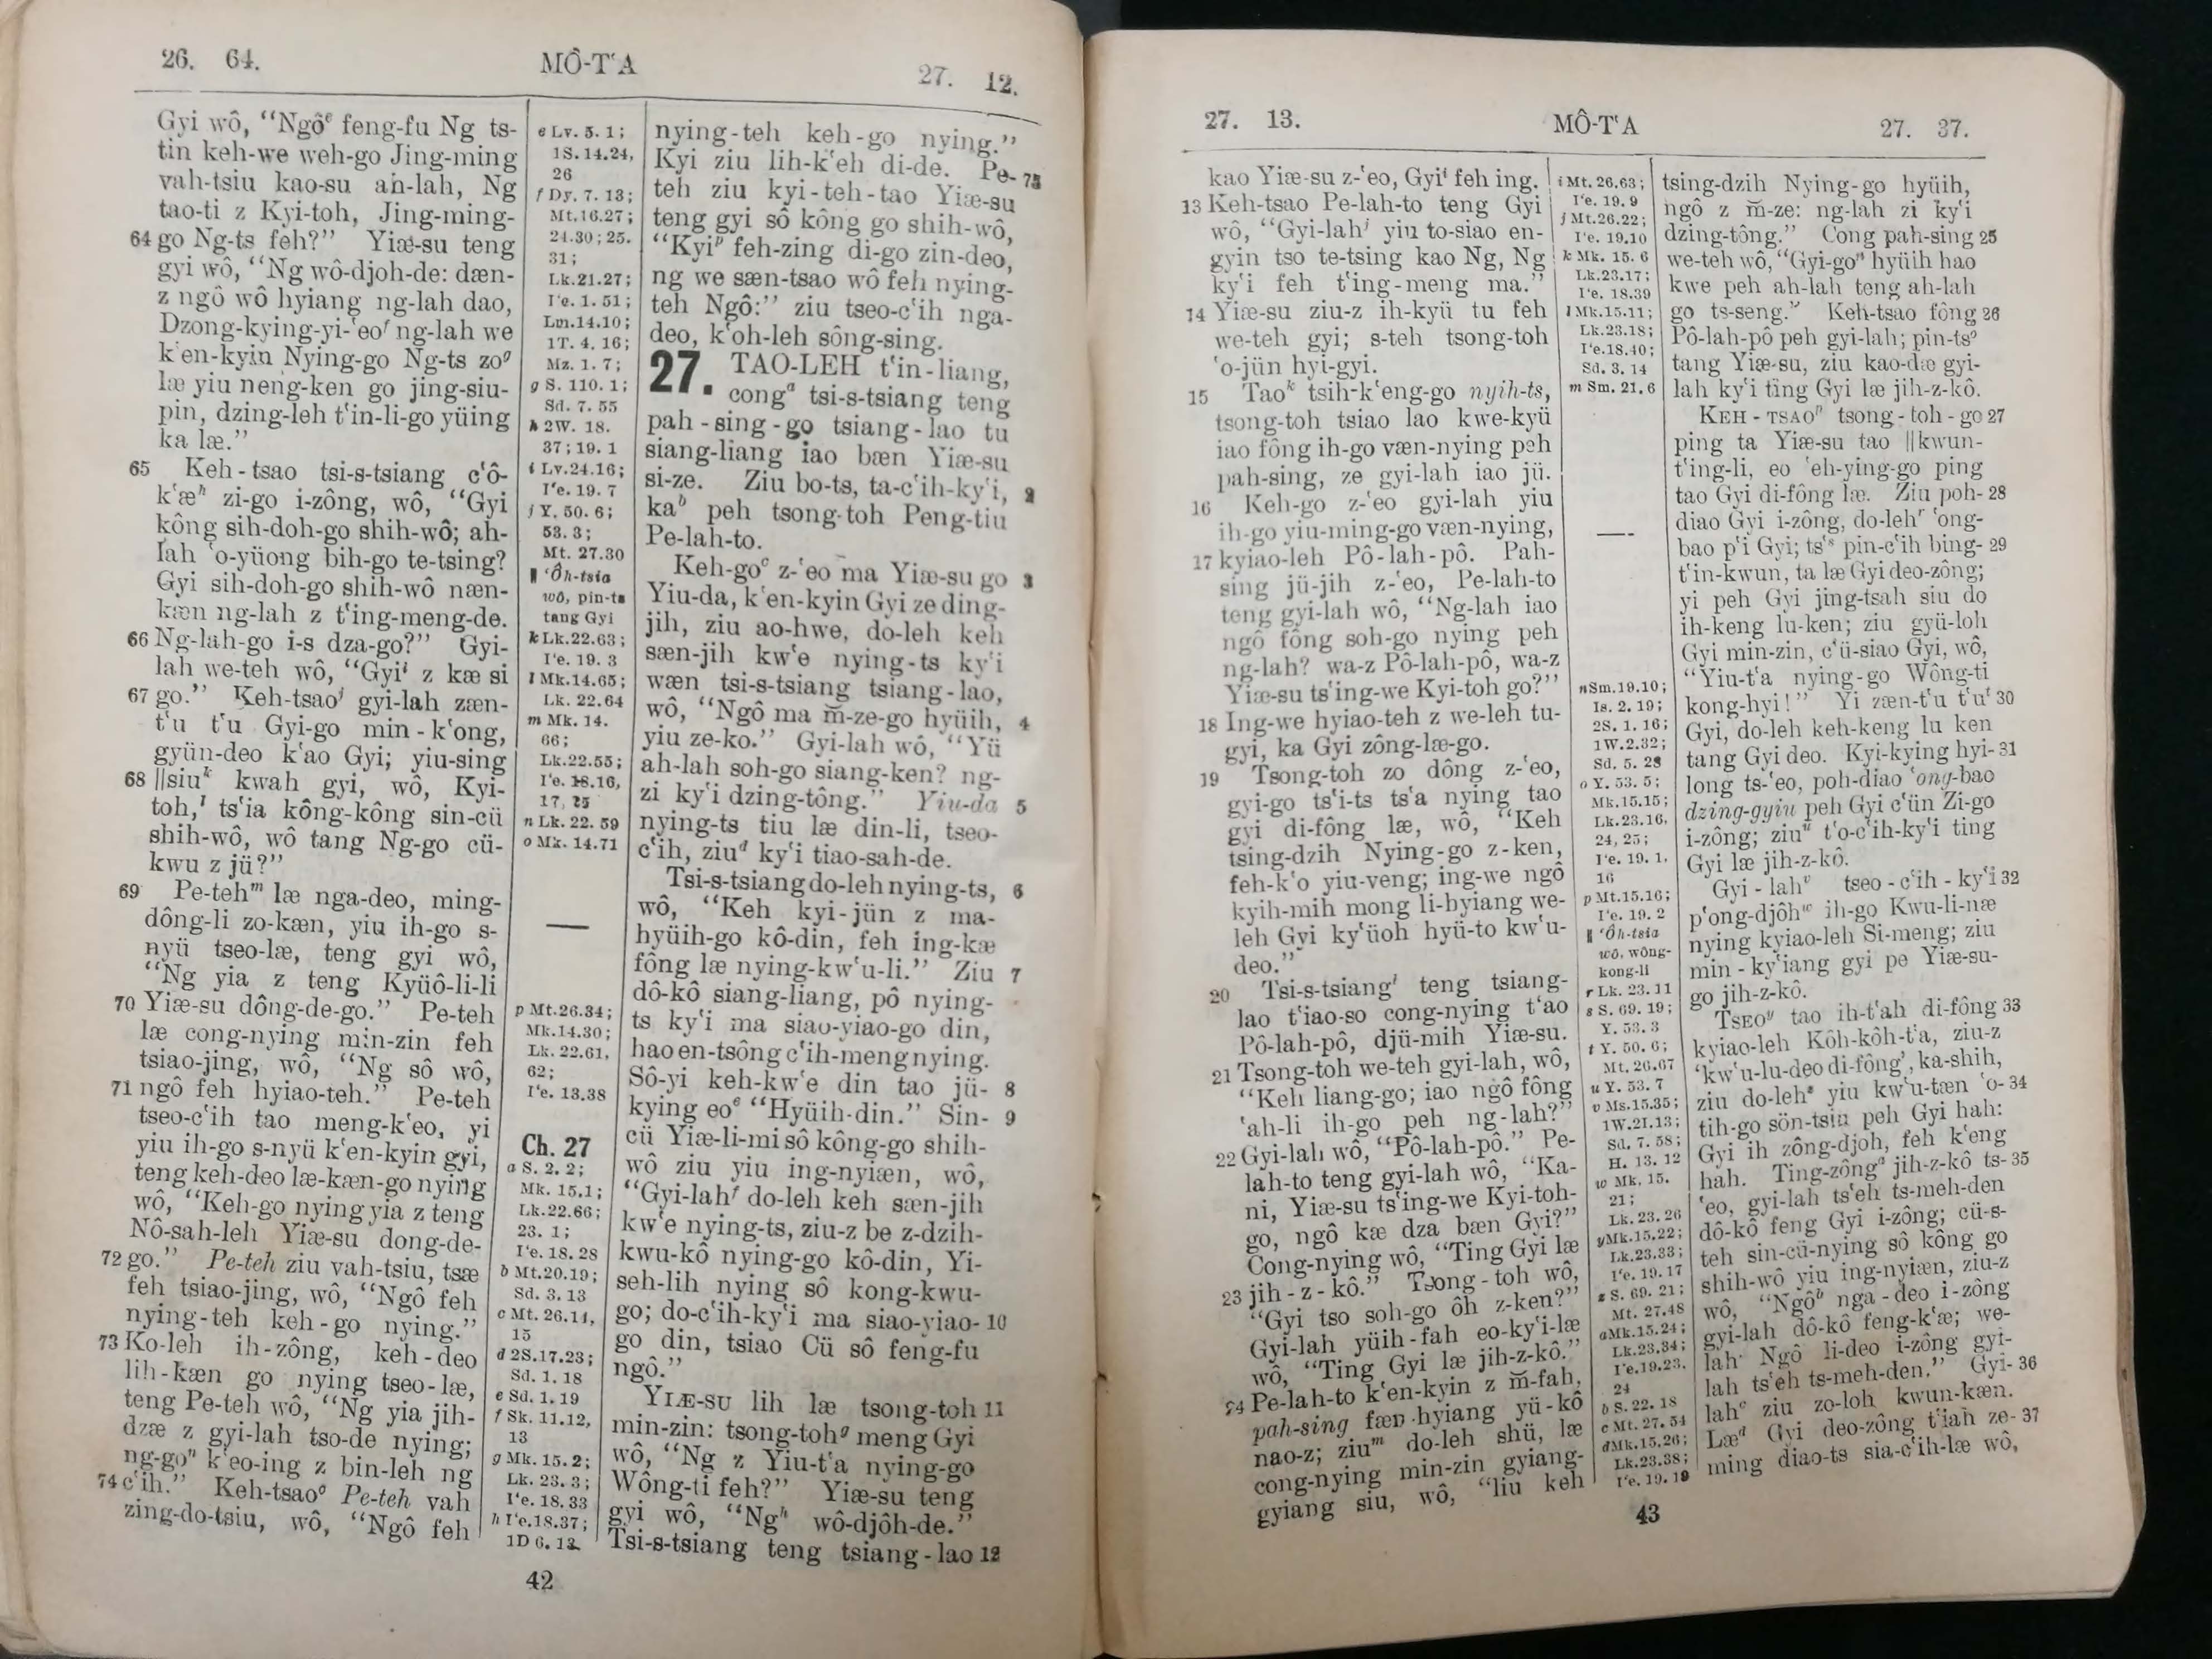 26. 64.
MÔ-TʻA
27. 12.
Gyi wô, “Ngôᵉ feng-fu Ng ts-
tin keh-we weh-go Jing-ming
vah-tsiu kao-su ah-lah, Ng
tao-ti z Kyi-toh, Jing-ming-
64 go Ng-ts feh?” Yiæ-su teng
gyi wô, “Ng wô-djoh-de: dæn-
z ngô wô hyiang ng-lah dao,
Dzong-kying-yi-ʻeoᶠ ng-lah we
kʻen-kyin Nying-go Ng-ts zoᵍ
læ yiu neng-ken go jing-siu-
pin, dzing-leh tʻin-li-go yüing
ka læ.”
65 Keh-tsao tsi-s-tsiang cʻô-
kʻæʰ zi-go i-zông, wô, “Gyi
kông sih-doh-go shih-wô; ah-
lah ʻo-yüong bih-go te-tsing?
Gyi sih-doh-go shih-wô næn-
kæn ng-lah z tʻing-meng-de.
66 Ng-lah-go i-s dza-go?” Gyi-
lah we-teh wô, “Gyiⁱ z kæ si
67 go.” Keh-tsaoʲ gyi-lah zæn-
tʻu tʻu Gyi-go min-kʻong,
gyün-deo kʻao Gyi; yiu-sing
68 ||siuᵏ kwah gyi, wô, Kyi-
toh,ˡ tsʻia kông-kông sin-cü
shih-wô, wô tang Ng-go cü-
kwu z jü?”
69 Pe-tehᵐ læ nga-deo, ming-
dông-li zo-kæn, yiu ih-go s-
nyü tseo-læ, teng gyi wô,
“Ng yia z teng Kyüô-li-li
70 Yiæ-su dông-de-go.” Pe-teh
læ cong-nying min-zin feh
tsiao-jing, wô, “Ng sô wô,
71 ngô feh hyiao-teh.” Pe-teh
tseo-cʻih tao meng-kʻeo, yi
yiu ih-go s-nyü kʻen-kyin gyi,
teng keh-deo læ-kæn-go nying
wô, “Keh-go nying yia z teng
Nô-sah-leh Yiæ-su dong-de-
72 go.” Pe-teh ziu vah-tsiu, tsæ
feh tsiao-jing, wô, “Ngô feh
nying-teh keh-go nying.”
73 Ko-leh ih-zông, keh-deo
lih-kæn go nying tseo-læ,
teng Pe-teh wô, “Ng yia jih-
dzæ z gyi-lah tso-de nying;
ng-goⁿ kʻeo-ing z bin-leh ng
74 cʻih.” Keh-tsaoᵒ Pe-teh vah
zing-do-tsiu, wô, “Ngô feh
e Lv. 5. 1;
1S. 14.24,
26
f Dy. 7. 13;
Mt.16.27;
24.30; 25.
31;
Lk.21.27;
Iʻe. 1. 51;
Lm.14.10;
1T. 4. 16;
Mz. 1. 7;
g S. 110. 1;
Sd. 7. 55
h 2W. 18.
37; 19. 1
i Lv.24.16;
Iʻe. 19. 7
j Y. 50. 6;
53. 3;
Mt. 27.30
|| ʻÔh-tsia
wô, pin-ts
tang Gyi
k Lk.22.63;
Iʻe. 19. 3
l Mk.14.65;
Lk. 22.64
m Mk. 14.
66;
Lk.22.55;
Iʻe. 18.16,
17, 25
n Lk. 22. 59
o Mk. 14.71
p Mt.26.34;
Mk.14.30;
Lk. 22.61,
62;
Iʻe. 13.38
Ch. 27
a S. 2. 2;
Mk. 15.1;
Lk.22.66;
23. 1;
Iʻe. 18. 28
b Mt.20.19;
Sd. 3. 13
c Mt. 26.14,
15
d 2S.17.23;
Sd. 1. 18
e Sd. 1. 19
f Sk. 11.12,
13
g Mk. 15. 2;
Lk. 23. 3;
Iʻe. 18. 33
h Iʻe.18.37;
1D 6. 13
nying-teh keh-go nying.”
Kyi ziu lih-kʻeh di-de. Pe- 75
teh ziu kyi-teh-tao Yiæ-su
teng gyi sô kông go shih-wô,
“Kyiᵖ feh-zing di-go zin-deo,
ng we sæn-tsao wô feh nying-
teh Ngô:” ziu tseo-cʻih nga-
deo, kʻoh-leh sông-sing.
27. TAO-LEH tʻin-liang,
congᵃ tsi-s-tsiang teng
pah-sing-go tsiang-lao tu
siang-liang iao bæn Yiæ-su
si-ze. Ziu bo-ts, ta-cʻih-kyʻi, 2
kaᵇ peh tsong-toh Peng-tiu
Pe-lah-to.
Keh-goᶜ z-ʻeo ma Yiæ-su go 3
Yiu-da, kʻen-kyin Gyi ze ding-
jih, ziu ao-hwe, do-leh keh
sæn-jih kwʻe nying-ts kyʻi
wæn tsi-s-tsiang tsiang-lao,
wô, “Ngô ma m̆-ze-go hyüih, 4
yiu ze-ko.” Gyi-lah wô, “Yü
ah-lah soh-go siang-ken? ng-
zi kyʻi dzing-tông.” Yiu-da 5
nying-ts tiu læ din-li, tseo-
cʻih, ziuᵈ kyʻi tiao-sah-de.
Tsi-s-tsiang do-leh nying-ts, 6
wô, “Keh kyi-jün z ma-
hyüih-go kô-din, feh ing-kæ
fông læ nying-kwʻu-li.” Ziu 7
dô-kô siang-liang, pô nying-
ts kyʻi ma siao-yiao-go din,
hao en-tsông cʻih-meng nying.
Sô-yi keh-kwʻe din tao jü- 8
kying eoᵉ “Hyüih-din.” Sin- 9
cü Yiæ-li-mi sô kông-go shih-
wô ziu yiu ing-nyiæn, wô,
“Gyi-lahᶠ do-leh keh sæn-jih
kwʻe nying-ts, ziu-z be z-dzih-
kwu-kô nying-go kô-din, Yi-
seh-lih nying sô kong-kwu-
go; do-cʻih-kyʻi ma siao-yiao- 10
go din, tsiao Cü sô feng-fu
ngô.”
YIÆ-SU lih læ tsong-toh 11
min-zin: tsong-tohᵍ meng Gyi
wô, “Ng z Yiu-tʻa nying-go
Wông-ti feh?” Yiæ-su teng
gyi wô, “Ngʰ wô-djôh-de.”
Tsi-s-tsiang teng tsiang-lao 12
42
27. 13.
MÔ-TʻA
27. 37.
kao Yiæ-su z-ʻeo, Gyiⁱ feh ing.
13 Keh-tsao Pe-lah-to teng Gyi
wô, “Gyi-lahʲ yiu to-siao en-
gyin tso te-tsing kao Ng, Ng
kyʻi feh tʻing-meng ma.”
14 Yiæ-su ziu-z ih-kyü tu feh
we-teh gyi; s-teh tsong-toh
ʻo-jün hyi-gyi.
15 Taoᵏ tsih-kʻeng-go nyih-ts,
tsong-toh tsiao lao kwe-kyü
iao fông ih-go væn-nying peh
pah-sing, ze gyi-lah iao jü.
16 Keh-go z-ʻeo gyi-lah yiu
ih-go yiu-ming-go væn-nying,
17 kyiao-leh Pô-lah-pô. Pah-
sing jü-jih z-ʻeo, Pe-lah-to
teng gyi-lah wô, “Ng-lah iao
ngô fông soh-go nying peh
ng-lah? wa-z Pô-lah-pô, wa-z
Yiæ-su tsʻing-we Kyi-toh go?”
18 Ing-we hyiao-teh z we-leh tu-
gyi, ka Gyi zông-læ-go.
19 Tsong-toh zo dông z-ʻeo,
gyi-go tsʻi-ts tsʻa nying tao
gyi di-fông læ, wô, “Keh
tsing-dzih Nying-go z-ken,
feh-kʻo yiu-veng; ing-we ngô
kyih-mih mong li-hyiang we-
leh Gyi kyʻüoh hyü-to kwʻu-
deo.”
20 Tsi-s-tsiangˡ teng tsiang-
lao tʻiao-so cong-nying tʻao
Pô-lah-pô, djü-mih Yiæ-su.
21 Tsong-toh we-teh gyi-lah, wô,
“Keh liang-go; iao ngô fông
ʻah-li ih-go peh ng-lah?”
22 Gyi-lah wô, “Pô-lah-pô.” Pe-
lah-to teng gyi-lah wô, “Ka-
ni, Yiæ-su tsʻing-we Kyi-toh-
go, ngô kæ dza bæn Gyi?”
Cong-nying wô, “Ting Gyi læ
23 jih-z-kô.” Tsong-toh wô,
“Gyi tso soh-go ôh z-ken?”
Gyi-lah yüih-fah eo-kyʻi-læ
wô, “Ting Gyi læ jih-z-kô.”
24 Pe-lah-to kʻen-kyin z m̆-fah,
pah-sing fæn-hyiang yü-kô
nao-z; ziuᵐ do-leh shü, læ
cong-nying min-zin gyiang-
gyiang siu, wô, “liu keh
i Mt. 26.63;
Iʻe. 19. 9
j Mt.26.22;
Iʻe. 19.10
k Mk. 15. 6
Lk.23.17;
Iʻe. 18.39
l Mk.15.11;
Lk.23.18;
Iʻe.18.40;
Sd. 3. 14
m Sm. 21. 6
n Sm.19.10;
Is. 2. 19;
2S. 1. 16;
1W.2.32;
Sd. 5. 28
o Y. 53. 5;
Mk.15.15;
Lk.23.16,
24, 25;
Iʻe. 19. 1,
16
p Mt.15.16;
Iʻe. 19. 2
|| ʻÔh-tsia
wô, wông-
kong-li
r Lk. 23. 11
s S. 69. 19;
Y. 53. 3
t Y. 50. 6;
Mt. 26.67
u Y. 53. 7
v Ms.15.35;
1W.21.13;
Sd. 7. 58;
H. 13. 12
w Mk. 15.
21;
Lk. 23. 26
y Mk.15.22;
Lk.23.33;
Iʻe. 19. 17
z S. 69. 21;
Mt. 27.48
a Mk.15.24;
Lk.23.34;
Iʻe.19.23,
24
b S. 22. 18
c Mt. 27. 54
d Mk.15.26;
Lk.23.38;
Iʻe. 19. 19
tsing-dzih Nying-go hyüih,
ngô z m̆-ze: ng-lah zi kyʻi
dzing-tông.” Cong pah-sing 25
we-teh wô, “Gyi-goⁿ hyüih hao
kwe peh ah-lah teng ah-lah
go ts-seng.” Keh-tsao fông 26
Pô-lah-pô peh gyi-lah; pin-tsᵒ
tang Yiæ-su, ziu kao-dæ gyi-
lah kyʻi ting Gyi læ jih-z-kô.
KEH-TSAOᵖ tsong-toh-go 27
ping ta Yiæ-su tao ||kwun-
tʻing-li, eo ʻeh-ying-go ping
tao Gyi di-fông læ. Ziu poh- 28
diao Gyi i-zông, do-lehʳ ʻong-
bao pʻi Gyi; tsʻˢ pin-cʻih bing- 29
tʻin-kwun, ta læ Gyi deo-zông;
yi peh Gyi jing-tsah siu do
ih-keng lu-ken; ziu gyü-loh
Gyi min-zin, cʻü-siao Gyi, wô,
“Yiu-tʻa nying-go Wông-ti
kong-hyi!” Yi zæn-tʻu tʻuᵗ 30
Gyi, do-leh keh-keng lu ken
tang Gyi deo. Kyi-kying hyi- 31
long ts-ʻeo, poh-diao ʻong-bao
dzing-gyiu peh Gyi cʻün Zi-go
i-zông; ziuᵘ tʻo-cʻih-kyʻi ting
Gyi læ jih-z-kô.
Gyi-lahᵛ tseo-cʻih-kyʻi 32
pʻong-djôhʷ ih-go Kwu-li-næ
nying kyiao-leh Si-meng; ziu
min-kyʻiang gyi pe Yiæ-su-
go jih-z-kô.
TSEOʸ tao ih-tʻah di-fông 33
kyiao-leh Kôh-kôh-tʻa, ziu-z
ʻkwʻu-lu-deo di-fôngʼ, ka-shih,
ziu do-lehᶻ yiu kwʻu-tæn ʻo- 34
tih-go sön-tsiu peh Gyi hah:
Gyi ih zông-djoh, feh kʻeng
hah. Ting-zôngᵃ jih-z-kô ts- 35
ʻeo, gyi-lah tsʻeh ts-meh-den
dô-kô feng Gyi i-zông; cü-s-
teh sin-cü-nying sô kông go
shih-wô yiu ing-nyiæn, ziu-z
wô, “Ngôᵇ nga-deo i-zông
gyi-lah dô-kô feng-kʻæ; we-
lah Ngô li-deo i-zông gyi-
lah tsʻeh ts-meh-den.” Gyi- 36
lahᶜ ziu zo-loh kwun-kæn.
Læᵈ Gyi deo-zông tʻiah ze- 37
ming diao-ts sia-cʻih-læ wô,
43